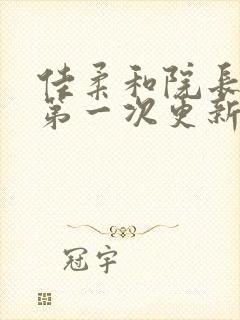 佳柔和院长
第一次更新
冠宇